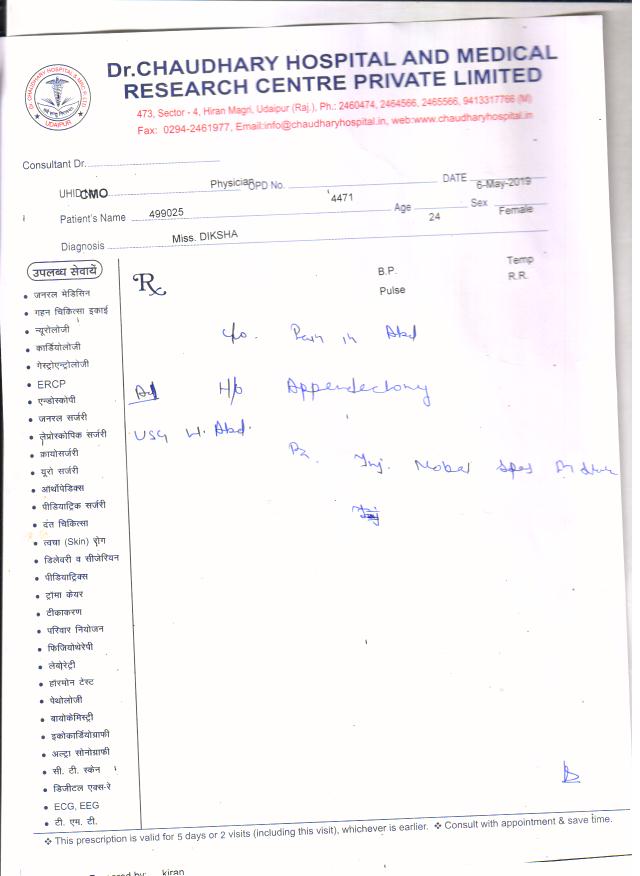 Dr.CHAUDHARY HOSPITAL AND MEDICAL
RESEARCH CENTRE PRIVATE LIMITED
473, Sector - 4, Hiran Magri, Udaipur (Raj.), Ph.: 2460474, 2464566, 2465566, 9413317766 (M)
Fax: 0294-2461977, Email:info@chaudharyhospital.in, web:www.chaudharyhospital.in
Dr. CHAUDHARY HOSPITAL & MRC P. LTD.
UDAIPUR
Consultant Dr.
UHID CMO Physician OPD No. 4471 DATE 6-May-2019
Patient's Name 499025 Age 24 Sex Female
Diagnosis Miss. DIKSHA
उपलब्ध सेवायें
Rx B.P. Temp
Pulse R.R.
जनरल मेडिसिन
गहन चिकित्सा इकाई
न्यूरोलोजी
कार्डियोलोजी
गेस्ट्रोएन्ट्रोलोजी
ERCP
एन्डोस्कोपी
जनरल सर्जरी
लेप्रोस्कोपिक सर्जरी
क्रायोसर्जरी
यूरो सर्जरी
ऑर्थोपेडिक्स
पीडियाट्रिक सर्जरी
दंत चिकित्सा
त्वचा (Skin) रोग
डिलेवरी व सीजेरियन
पीडियाट्रिक्स
ट्रॉमा केयर
टीकाकरण
परिवार नियोजन
फिजियोथेरेपी
लेबोरेट्री
हॉरमोन टेस्ट
पेथोलोजी
बायोकेमिस्ट्री
इकोकार्डियोग्राफी
अल्ट्रा सोनोग्राफी
सी. टी. स्केन
डिजीटल एक्स-रे
ECG, EEG
टी. एम. टी.
c/o. Pain in Abd
Ad H/o Appendectomy
USG W. Abd.
Rx. Inj. Mobal Spas
Inj
This prescription is valid for 5 days or 2 visits (including this visit), whichever is earlier. Consult with appointment & save time.
kiran